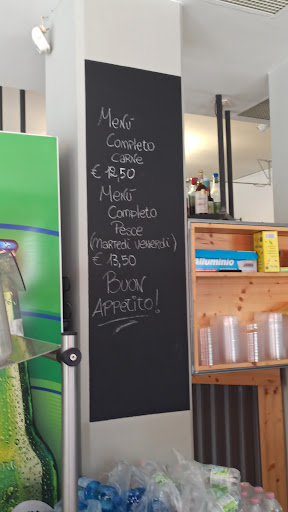 Menù
Completo
Carne
€ 12,50
Menù
Completo
Pesce
(Martedì Venerdì)
€ 13,50
Buon
Appetito!
alluminio